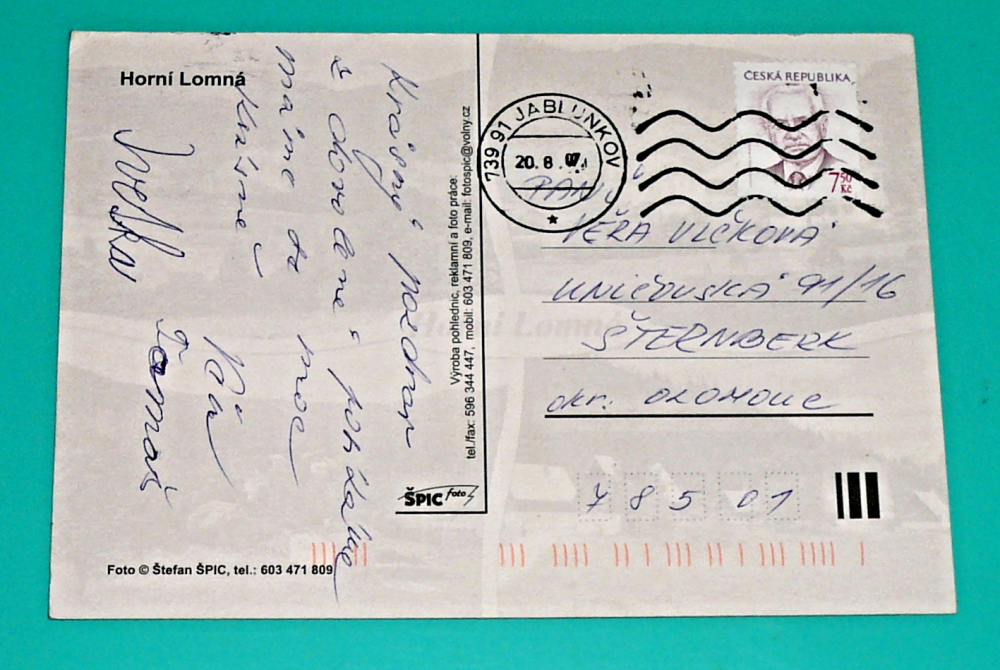 Horní Lomná
Krásný pozdrav
z dovolené
máme to moc
krásné
Váš
Tomáš
Výroba pohlednic, reklamní a foto práce:
tel./fax: 596 344 447, mobil: 603 471 809, e-mail: fotospic@volny.cz
ŠPIC foto
Foto © Štefan ŠPIC, tel.: 603 471 809
739 91 JABLUNKOV
20.8.07
ČESKÁ REPUBLIKA
7 50
Kč
PANÍ
VĚRA VLČKOVÁ
UNIČOVSKÁ 91/16
ŠTERNBERK
okr. OLOMOUC
785 01
Horní Lomná